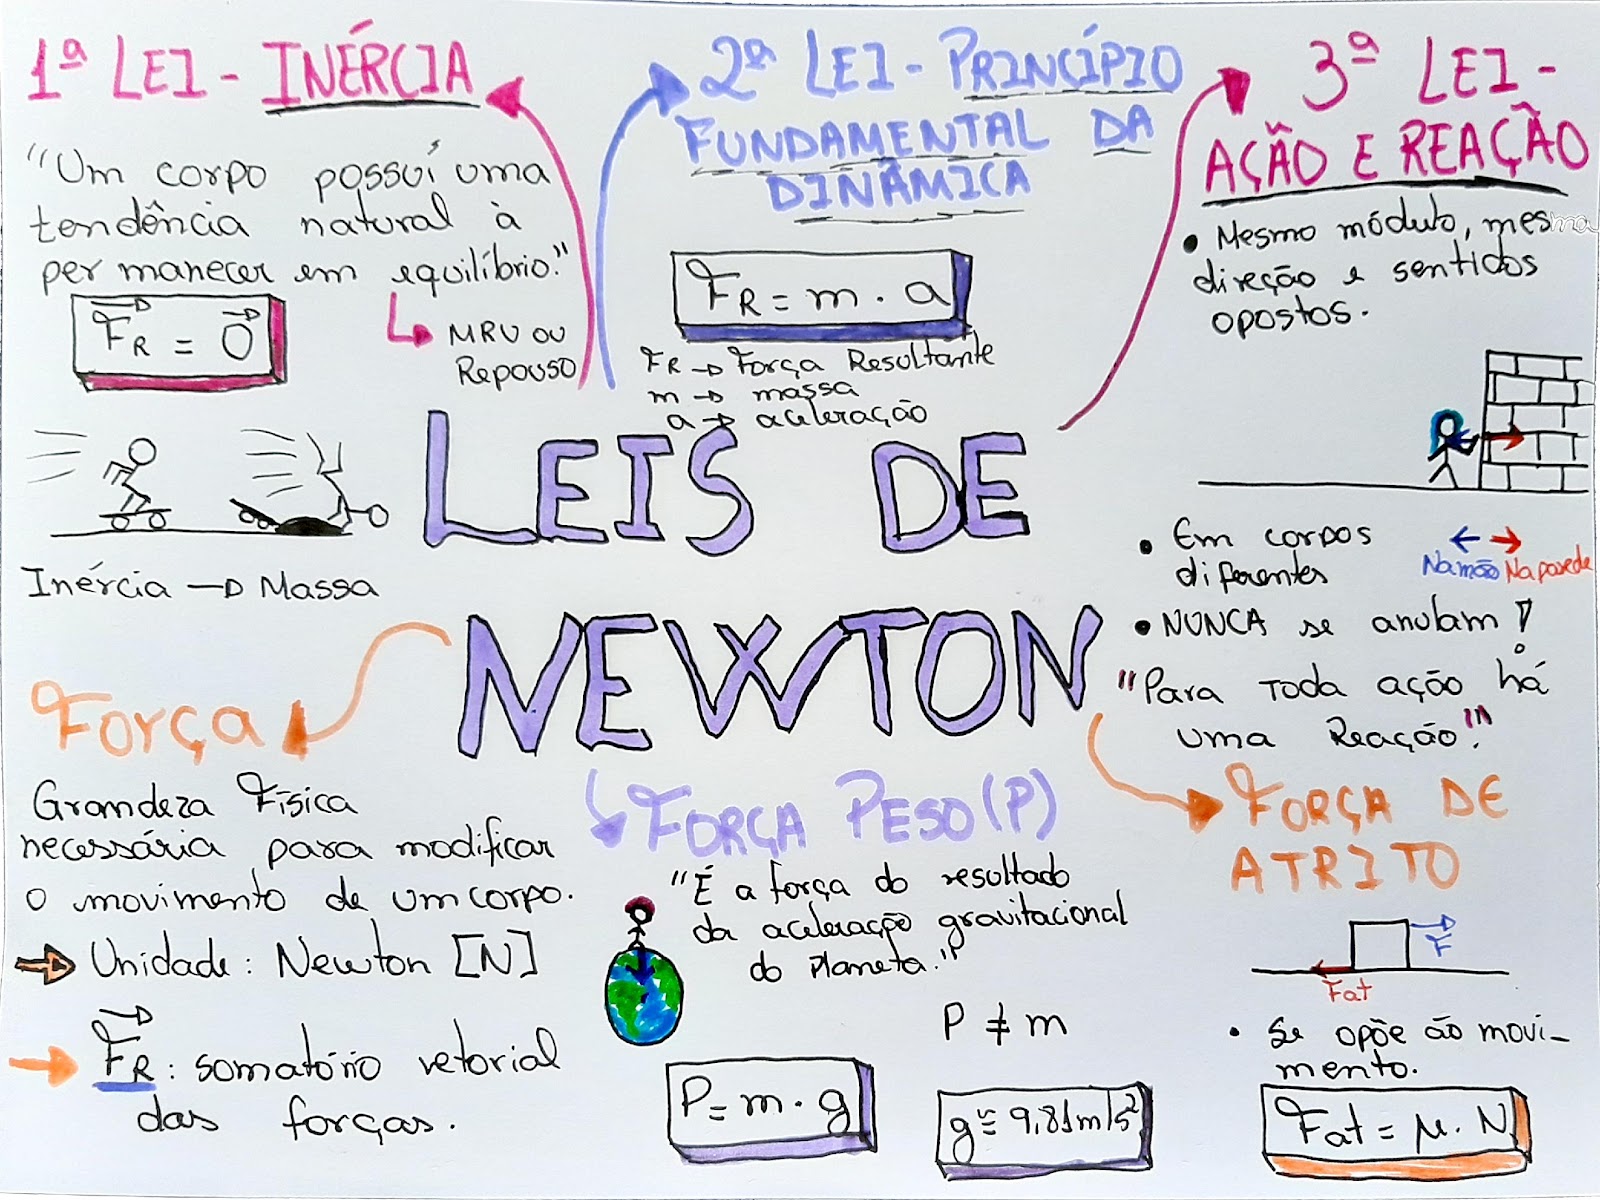 1ª LEI - INÉRCIA
"Um corpo possuí uma
tendência natural à
permanecer em equilíbrio."
FR = 0
MRU ou
Repouso
Inércia → Massa
2ª LEI - PRINCÍPIO
FUNDAMENTAL DA
DINÂMICA
FR = m . a
FR → Força Resultante
m → massa
a → aceleração
3ª LEI -
AÇÃO E REAÇÃO
• Mesmo módulo, mesma
direção e sentidos
opostos.
• Em corpos
diferentes
Na mão Na parede
• NUNCA se anulam!
"Para toda ação há
uma Reação."
LEIS DE
NEWTON
FORÇA
Grandeza Física
necessária para modificar
o movimento de um corpo.
→ Unidade: Newton [N]
→ FR: somatório vetorial
das forças.
FORÇA PESO (P)
"É a força do resultado
da aceleração gravitacional
do planeta."
P ≠ m
P = m . g
g ≅ 9,81m/s²
FORÇA DE
ATRITO
F
Fat
• Se opõe ão movi-
mento.
Fat = μ . N